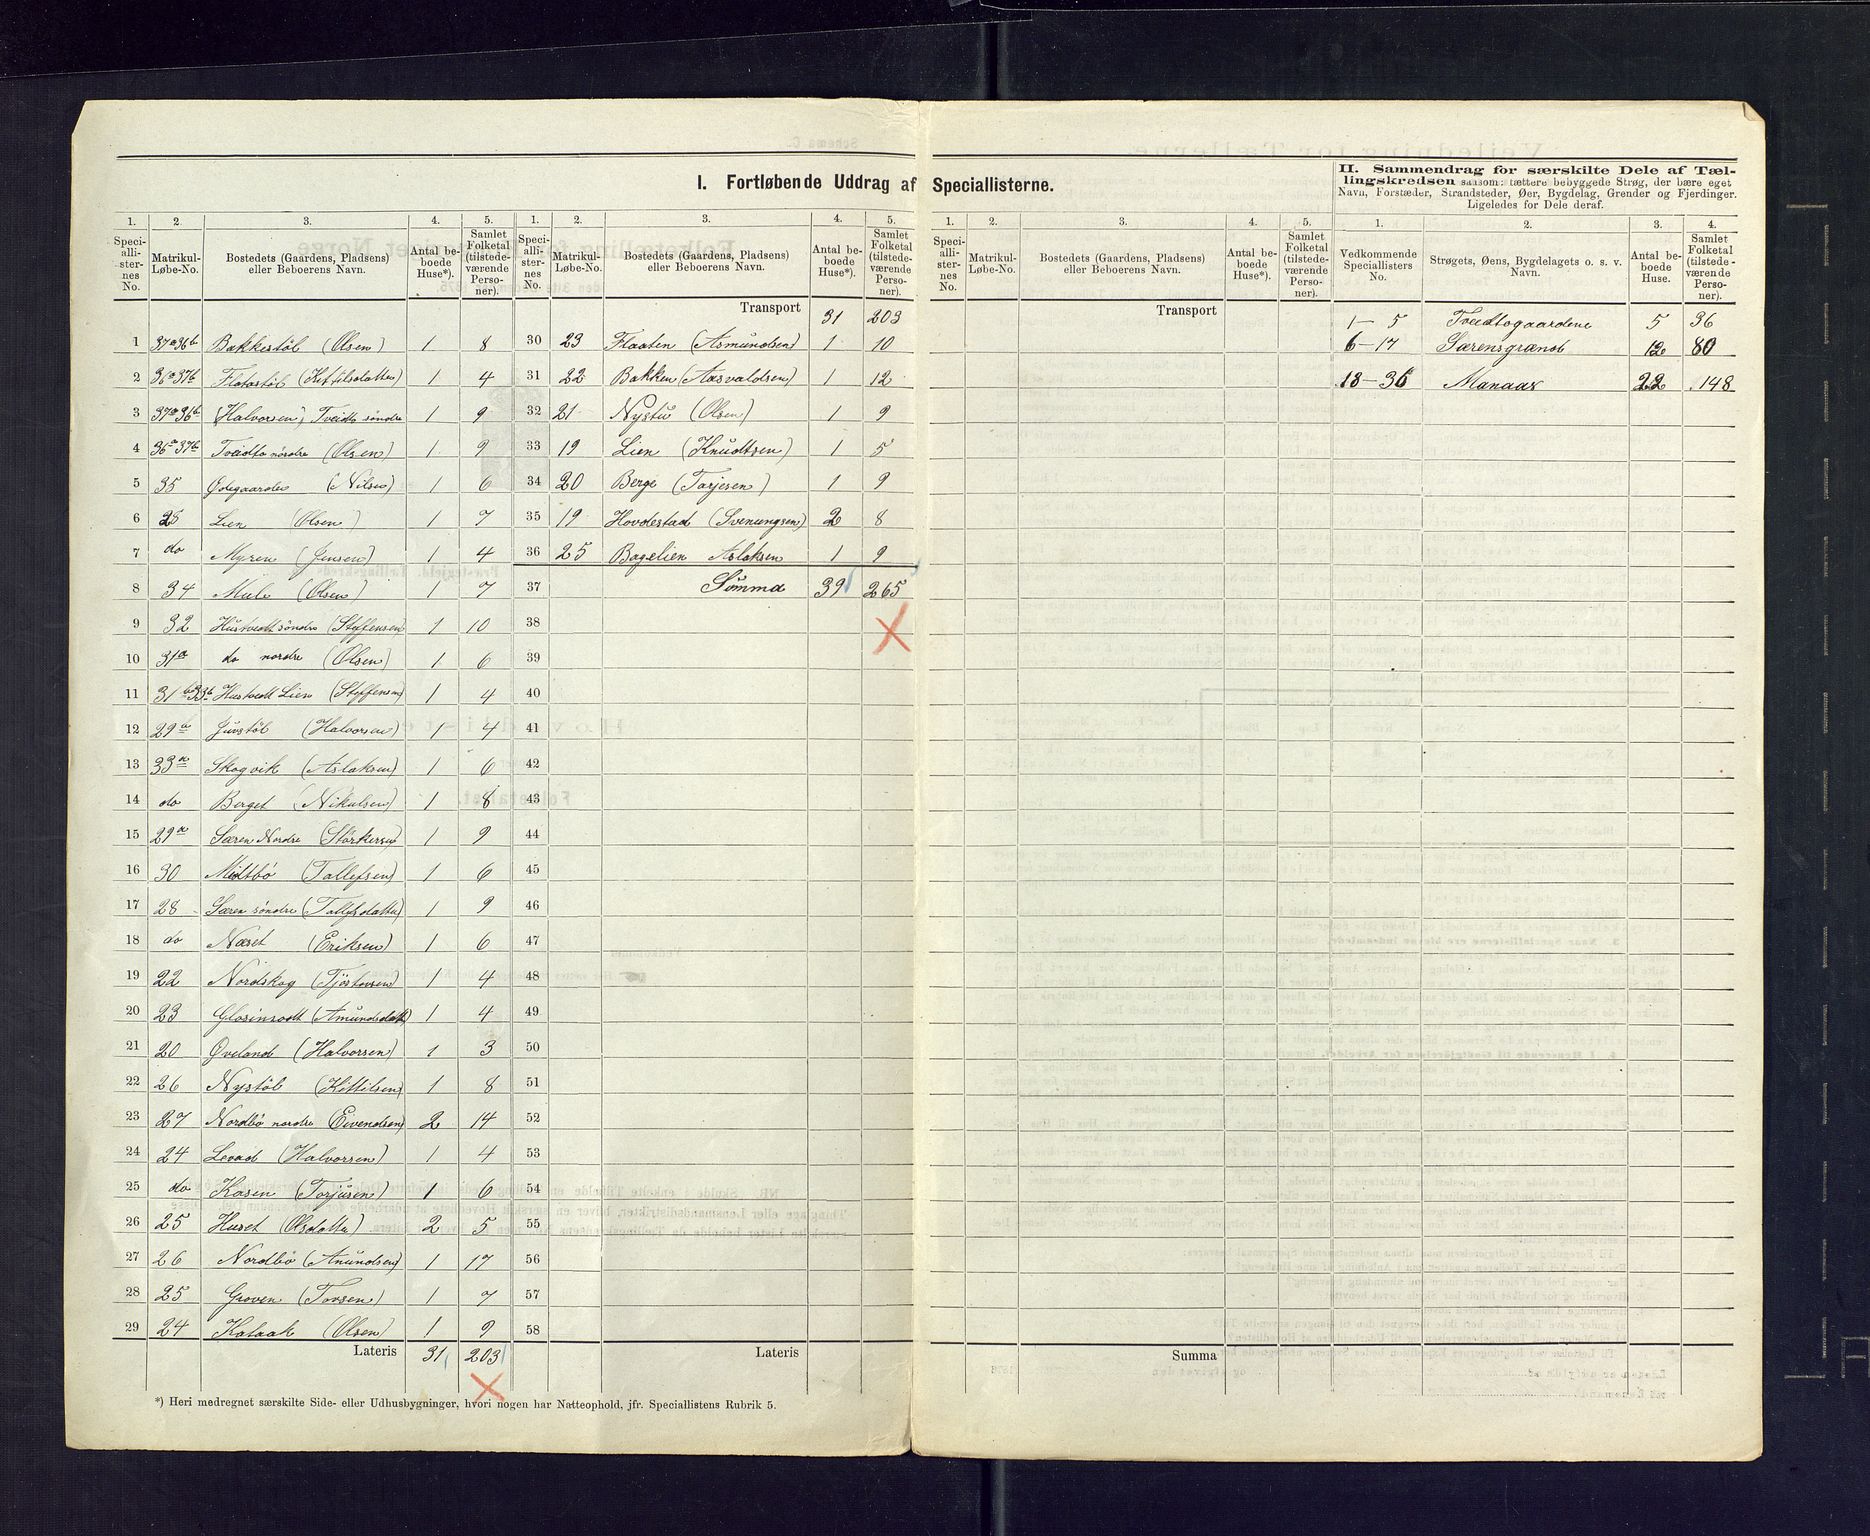 I. Fortløbende Uddrag af Speciallisterne.
1. 2. 3. 4. 5. 1. 2. 3. 4. 5.
Speciallisternes No. Matrikul-Løbe-No. Bostedets (Gaardens, Pladsens) eller Beboerens Navn. Antal beboede Huse*). Samlet Folketal (tilstedeværende Personer).
1 37a 36b Bakkestøl (Olsen) 1 8
2 36a 37b Flotastøl (Kittilsdatter) 1 4
3 37a 36b (Halvorsen) Tveidto søndre 1 9
4 36a 37b Tveidto nordre (Olsen) 1 9
5 35 Ødegaarden (Nilsen) 1 6
6 28 Lien (Olsen) 1 7
7 do Myren (Jensen) 1 4
8 34 Mule (Olsen) 1 7
9 32 Hustvedt søndre (Steffensen) 1 10
10 31a do nordre (Olsen) 1 6
11 31b 33b Hustvedt Lien (Steffensen) 1 4
12 29b Juvstøl (Halvorsen) 1 4
13 33a Skogvik (Aslaksen) 1 6
14 do Berget (Nikulsen) 1 8
15 29a Særen Nordre (Størkersen) 1 9
16 30 Midtbø (Tallefsen) 1 6
17 28 Særen søndre (Tallefsdatter) 1 9
18 do Næset (Eriksen) 1 6
19 22 Nordskog (Tjøstovsen) 1 4
20 23 (Amundsdatt) 1 4
21 20 Øveland (Halvorsen) 1 3
22 26 Nystøl (Kittilsen) 1 8
23 27 Nordbø nordre (Eivendsen) 2 14
24 24 Levad (Halvorsen) 1 4
25 do Kasin (Torjusen) 1 6
26 25 Huset (Olsdatter) 2 5
27 26 Nordbø (Anundsen) 1 17
28 25 Groven (Tovsen) 1 7
29 24 Kalaak (Olsen) 1 9
Lateris 31 203
*) Heri medregnet særskilte Side- eller Udhusbygninger, hvori nogen har Natteophold, jfr. Speciallistens Rubrik 5.
Speciallisternes No. Matrikul-Løbe-No. Bostedets (Gaardens, Pladsens) eller Beboerens Navn. Antal beboede Huse*). Samlet Folketal (tilstedeværende Personer).
Transport 31 203
30 23 Flaaten (Asmundsen) 1 10
31 22 Bakken (Aasvaldsen) 1 12
32 21 Nystu (Olsen) 1 9
33 19 Lien (Knudtsen) 1 5
34 20 Berge (Tarjesen) 1 9
35 19 Hovdestad (Svenungsen) 2 8
36 25 Bagelien Aslaksen 1 9
37 Summa 39 265
38
39
40
41
42
43
44
45
46
47
48
49
50
51
52
53
54
55
56
57
58
Lateris
1. 2. 3. 4. 5.
Speciallisternes No. Matrikul-Løbe-No. Bostedets (Gaardens, Pladsens) eller Beboerens Navn. Antal beboede Huse*). Samlet Folketal (tilstedeværende Personer).
Transport
Summa
II. Sammendrag for særskilte Dele af Tællingskredsen saasom: tættere bebyggede Strøg, der bære eget Navn, Forstæder, Strandsteder, Øer, Bygdelag, Grender og Fjerdinger. Ligeledes for Dele deraf.
1. 2. 3. 4.
Vedkommende Speciallisters No. Strøgets, Øens, Bygdelagets o. s. v. Navn. Antal beboede Huse. Samlet Folketal (tilstedeværende Personer).
1–5 Tveidtogaardene 5 36
6–17 Særensgrænd 12 80
18–36 Manaas 22 148